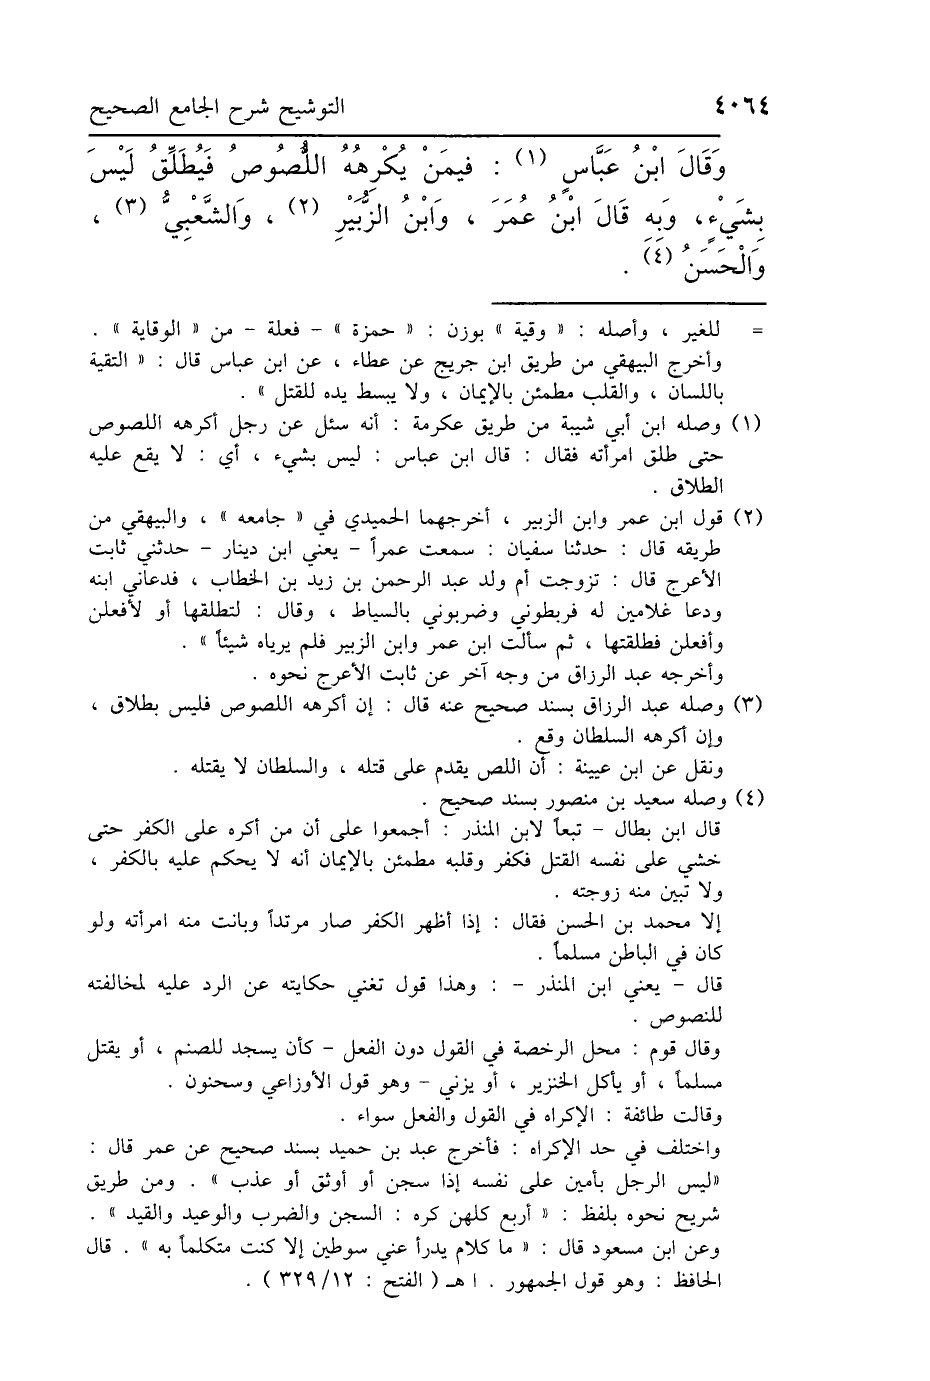 ٤٠٦٤ التوشيح شرح الجامع الصحيح
وَقَالَ ابْنُ عَبَّاسٍ (١) : فيمَنْ يُكْرِهُهُ اللُّصُوصُ فَيُطَلِّقُ لَيْسَ
بِشَيْءٍ، وَبِهِ قَالَ ابْنُ عُمَرَ ، وَابْنُ الزُّبَيْرِ (٢) ، وَالشَّعْبِيُّ (٣) ،
وَالْحَسَنُ (٤) .
= للغير ، وأصله : « وقية » بوزن : « حمزة » – فعلة – من « الوقاية » .
وأخرج البيهقي من طريق ابن جريج عن عطاء ، عن ابن عباس قال : « التقية
باللسان ، والقلب مطمئن بالإيمان ، ولا يبسط يده للقتل » .
(١) وصله ابن أبي شيبة من طريق عكرمة : أنه سئل عن رجل أكرهه اللصوص
حتى طلق امرأته فقال : قال ابن عباس : ليس بشيء ، أي : لا يقع عليه
الطلاق .
(٢) قول ابن عمر وابن الزبير ، أخرجهما الحميدي في « جامعه » ، والبيهقي من
طريقه قال : حدثنا سفيان : سمعت عمراً – يعني ابن دينار – حدثني ثابت
الأعرج قال : تزوجت أم ولد عبد الرحمن بن زيد بن الخطاب ، فدعاني ابنه
ودعا غلامين له فربطوني وضربوني بالسياط ، وقال : لتطلقها أو لأفعلن
وأفعلن فطلقتها ، ثم سألت ابن عمر وابن الزبير فلم يرياه شيئاً » .
وأخرجه عبد الرزاق من وجه آخر عن ثابت الأعرج نحوه .
(٣) وصله عبد الرزاق بسند صحيح عنه قال : إن أكرهه اللصوص فليس بطلاق ،
وإن أكرهه السلطان وقع .
ونقل عن ابن عيينة : أن اللص يقدم على قتله ، والسلطان لا يقتله .
(٤) وصله سعيد بن منصور بسند صحيح .
قال ابن بطال – تبعاً لابن المنذر : أجمعوا على أن من أكره على الكفر حتى
خشي على نفسه القتل فكفر وقلبه مطمئن بالإيمان أنه لا يحكم عليه بالكفر ،
ولا تبين منه زوجته .
إلا محمد بن الحسن فقال : إذا أظهر الكفر صار مرتداً وبانت منه امرأته ولو
كان في الباطن مسلماً .
قال – يعني ابن المنذر – : وهذا قول تغني حكايته عن الرد عليه لمخالفته
للنصوص .
وقال قوم : محل الرخصة في القول دون الفعل – كأن يسجد للصنم ، أو يقتل
مسلماً ، أو يأكل الخنزير ، أو يزني – وهو قول الأوزاعي وسحنون .
وقالت طائفة : الإكراه في القول والفعل سواء .
واختلف في حد الإكراه : فأخرج عبد بن حميد بسند صحيح عن عمر قال :
«ليس الرجل بأمين على نفسه إذا سجن أو أوثق أو عذب » . ومن طريق
شريح نحوه بلفظ : « أربع كلهن كره : السجن والضرب والوعيد والقيد » .
وعن ابن مسعود قال : « ما كلام يدرأ عني سوطين إلا كنت متكلماً به » . قال
الحافظ : وهو قول الجمهور . ا هـ ( الفتح : ٣٢٩/١٢ ) .